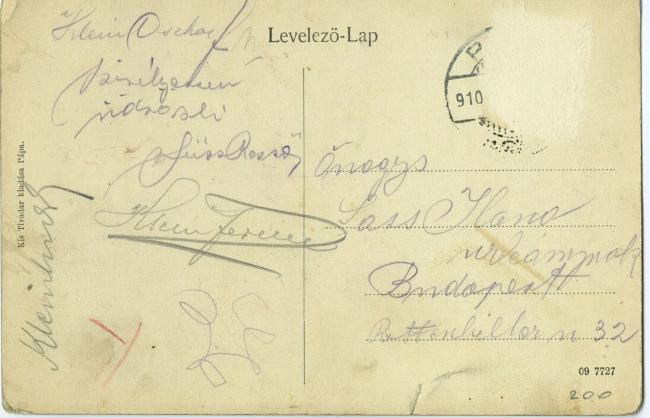 Klein Oszkár
Levelező-Lap
910
szivélyesen
üdvözli
Süss Rezső
Őnagys
Kis Tivadar kiadása Pápa.
Klein Ferenc
Sass Ilona
urleánynak
Budapest
Rottenbiller u 32
09 7727
200